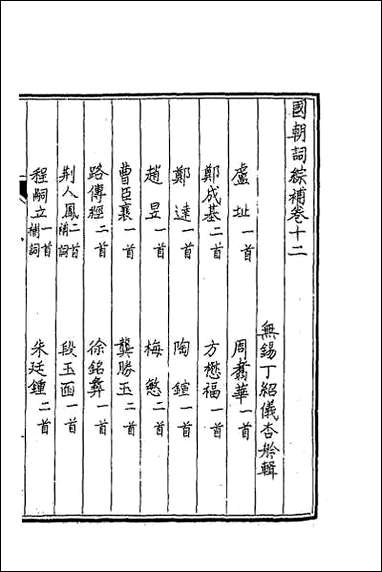 國朝詞綜補卷十二
無錫丁紹儀杏舲輯
盧址一首 周翥華一首
鄭成基二首 方懋福一首
鄭達一首 陶鎔一首
趙昱一首 梅敏二首
曹臣襄一首 龔勝玉二首
路傳經二首 徐銘彝一首
荆人鳳二首補詞 段玉函一首
程嗣立一首補詞 朱廷鍾二首